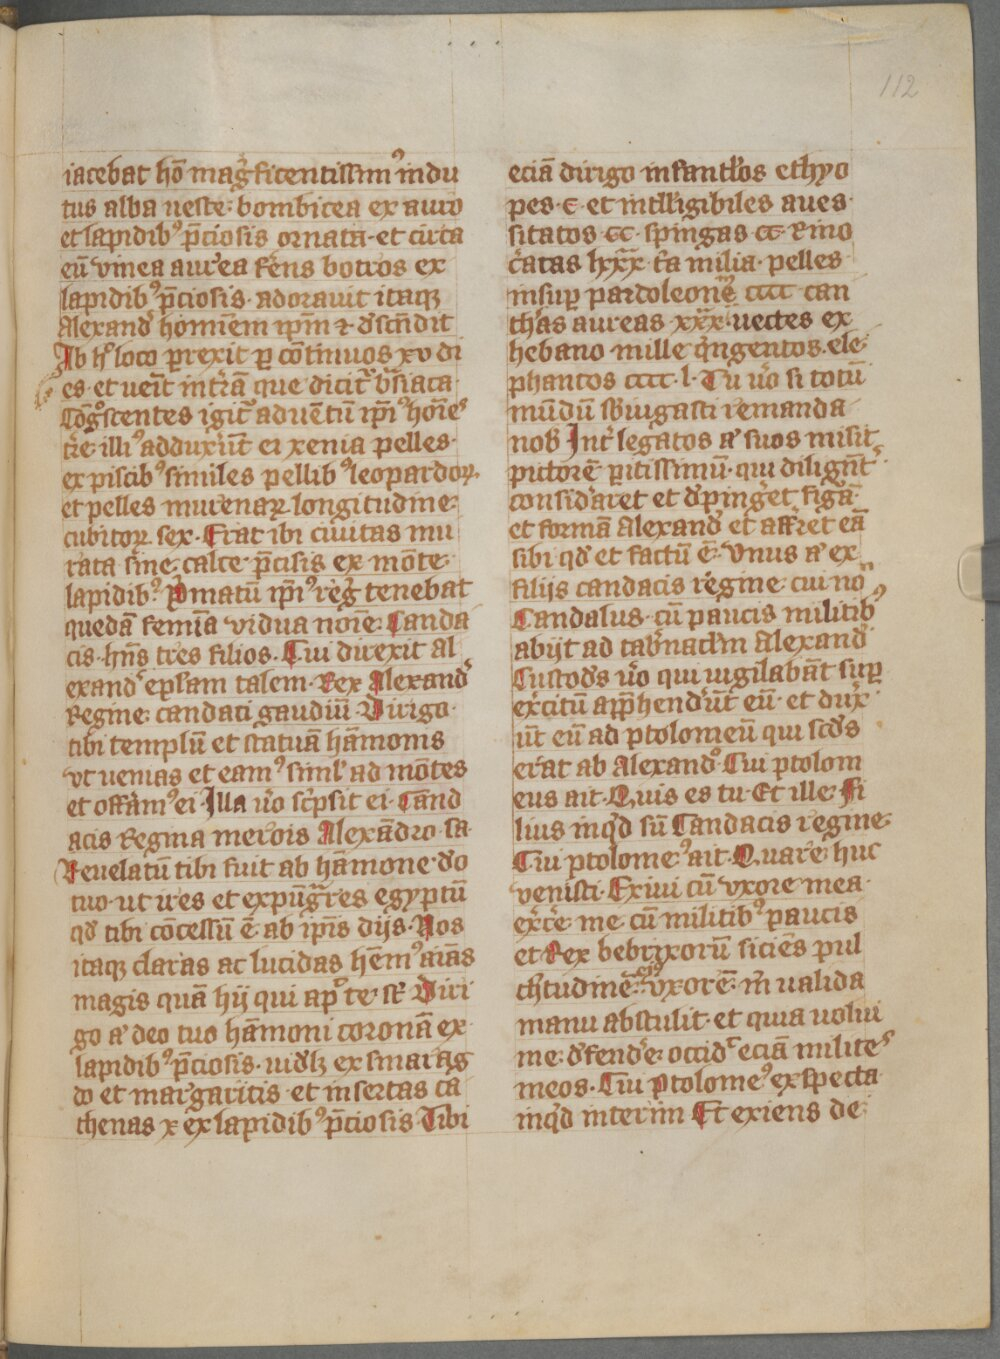 112
iacebat hō mag̾ficentissim᾽ indu
tus alba ueste· bombicea ex auro
et lapidib᾽ p̄ciosis ornata· et circa
eū vinea aurea fer̄ns botros ex
lapidib᾽ p̄ciosis· adorauit itaqꝫ
Alexand̾ hominem ip̄m ⁊ d̾scn̄dit
Ab h̾ loco perexit ꝑ cōtinuos xv di
es· et ueīt int̾rā que dicit̾ b̾siaca·
Cōg̊scentes igit̾ aduētū ip̄i᾽ hoīes
tr̄e illi᾽ adduxer̄ūt ei xenia pelles·
ex piscib᾽ similes pellib᾽ leopardoꝝ
et pelles murenaꝝ longitudine·
cubitoꝝ sex· Erat ibi ciuitas mu
rata sine calce p̄cisis ex mōte·
lapidib᾽· p̾matū ip̄i᾽ reg̾ tenebat
quedā femīa vidua noīe· Canda
cis· hn̄s tres filios· Cui direxit al
exand̾ ep̄lam talem· Rex Alexand̾
Regine· candaci gaudiū· Dirigo·
tibi templū et statuā hāmonis
vt uenias et eam᾽ simul̾ ad mōtes
et offer̄am᾽ ei· Illa u̾o sc̾psit ei· Cand
acis Regina merois Alexādro sa·
Reuelatū tibi fuit ab hāmone d̾o
tuo· ut ires et expūg̾res egyptū
qd̾ tibi cōcessū ē ab ip̄is dijs· Nos
itaqꝫ claras ac lucidas hēm᾽ aīas
magis quā hij qui ap̊ te· st̄· Diri
go a᾽ deo tuo hāmoni coronā ex·
lapidib᾽ p̄ciosis· uid̾lꝫ ex smarag
do et margaritis· et insertas ca
thenas x ex lapidib᾽ p̄ciosis· Tibi
eciā dirigo infantl̾os ethyo
pes· c· et intlligibiles aues·
sitatos cc· spingas cc· Rino
c̾atas lxxx· t̾a milia· pelles·
insuꝑ pardoleonē cccc can
th̾as aureas xxx· uectes ex
hebano mille q̾ngentos· ele·
phantos cccc· l· Tu u̾o si totū
mūdū sb̾iugasti remanda·
nob̾ Int̾ legatos a᾽ suos misit
pictorē ꝑitissimū· qui dilign̄t᾽
consid̾aret et d̾ping̾et fig̾ā
et formā Alexand̾ et aff̾ret eā
sibi qd̾ et factū ē· Vnus a᾽ ex
filijs candacis regine· cui nom̄
Candalus· cū paucis militib᾽
abijt ad tab̾nacl̾m Alexand̾·
Custod̾s u̾o qui uigilabāt suꝑ
ex̾citū app̄hend̾ūt eū· et dux̾
ūt eū ad ptolomeū qui scd̾s
erat ab Alexand̊· Cui ptolom
eus ait· Quis es tu· Et ille· Fi
lius inq̾d sū Candacis regine·
Cui ptolome᾽ ait· Quare· huc
venisti· Exiui cū vxore mea·
ex̾c̾e me cū militib᾽ paucis
et Rex bebryxorū sciēs pul
ch̾tudinē· ei᾽ vxorē· m̾ ualida
manu abstulit· et quia uolui
me· d̾fend̾e· occid᾽ eciā milites
meos· Cui Ptolome᾽ exspecta·
inq̾d interim Et exiens de·